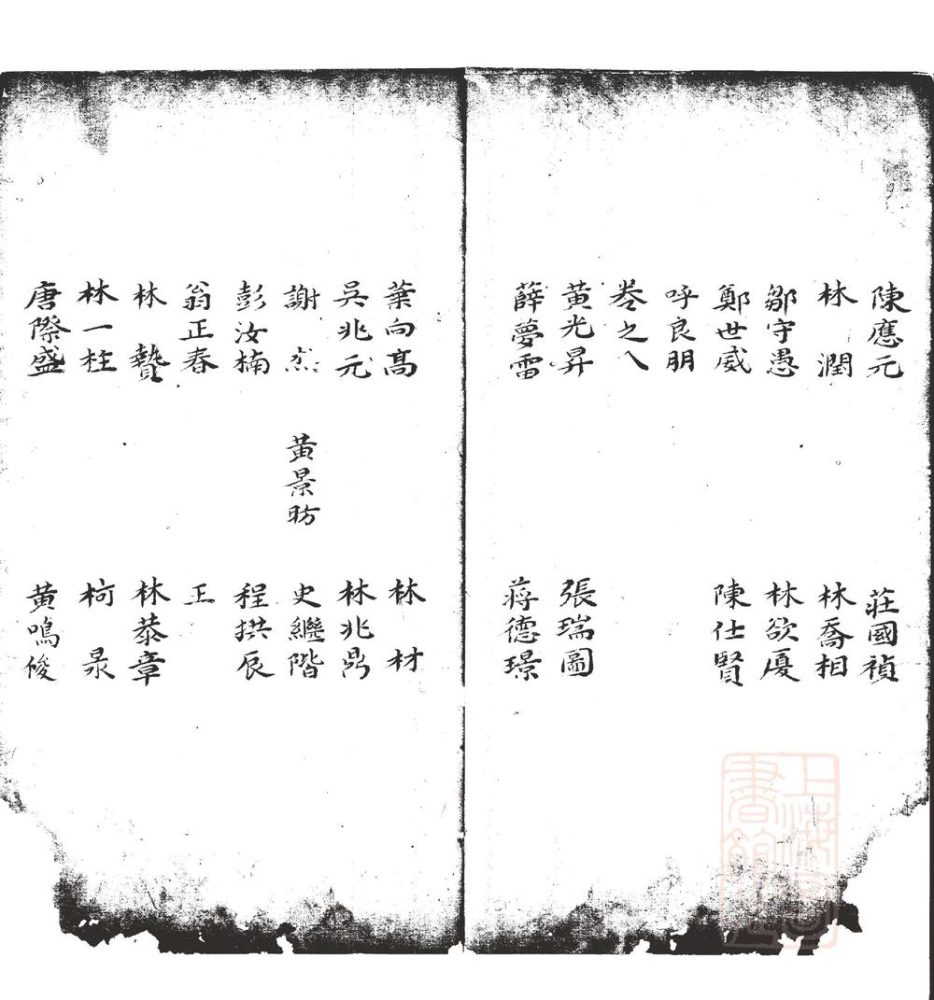 陳應元 莊國禎
林 潤 林喬相
鄒守愚 林欲厦
鄭世威 陳仕賢
呼良朋
卷之八
黃光昇 張瑞圖
薛夢雷 蔣德璟
葉向髙 林 材
吳兆元 林兆鼎
謝 杰 黃景昉 史繼階
彭汝楠 程拱辰
翁正春 王
林 贄 林㳟章
林一柱 柯 昶
唐際盛 黃鳴俊
上海圖書館藏